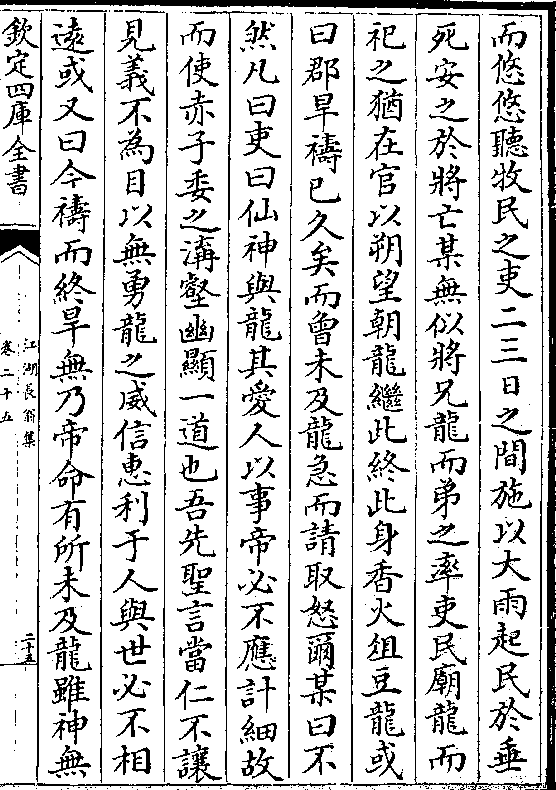 而悠悠聽牧民之吏二三日之間施以大雨起民於垂
死安之於將亡某無似將兄龍而弟之率吏民廟龍而
祀之猶在官以朔望朝龍繼此終此身香火俎豆龍或
曰郡旱禱已久矣而曾未及龍急而請取怒爾某曰不
然凡曰吏曰仙神與龍其愛人以事帝必不應計細故
而使赤子委之溝壑幽顯一道也吾先聖言當仁不讓
見義不為目以無勇龍之威信惠利于人與世必不相
遠或又曰今禱而終旱無乃帝命有所未及龍雖神無
欽定四庫全書
江湖長翁集
卷二十五
二十五